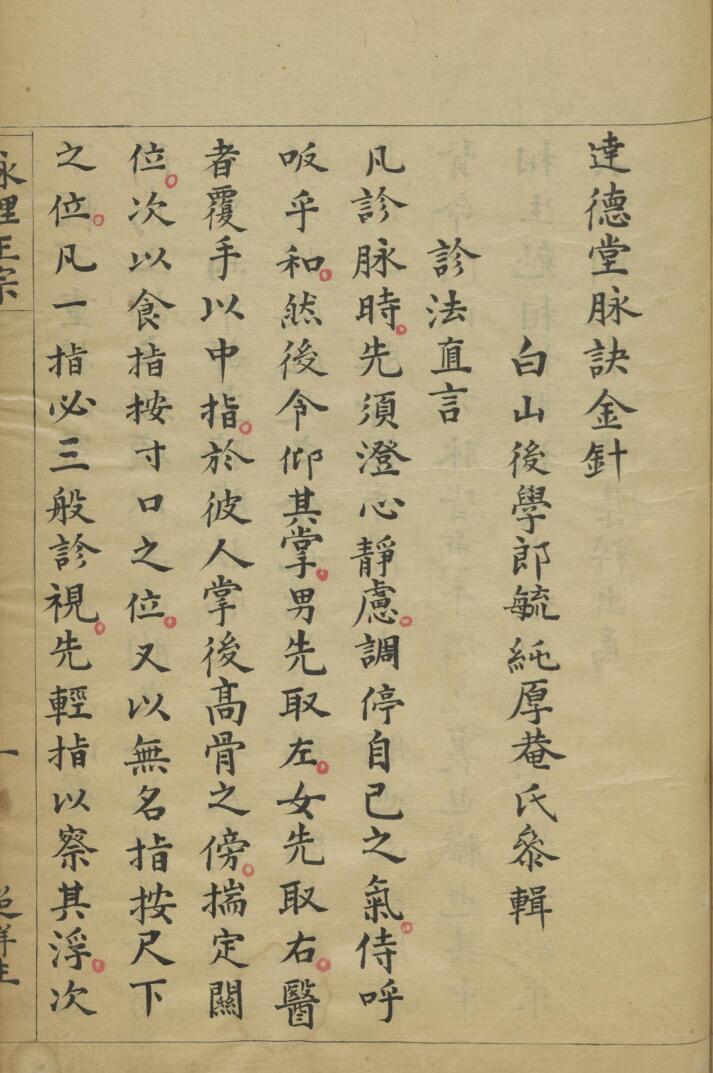 達德堂脉訣金針
白山後學郎毓純厚菴氏叅輯
診法直言
凡診脉時。先須澄心靜慮。調停自己之氣。侍呼
吸乎和。然後令仰其掌。男先取左。女先取右。醫
者覆手以中指。於彼人掌後高骨之傍。揣定關
位。次以食指按寸口之位。又以無名指按尺下
之位。凡一指必三般診視。先輕指以察其浮。次
脉理正宗
一